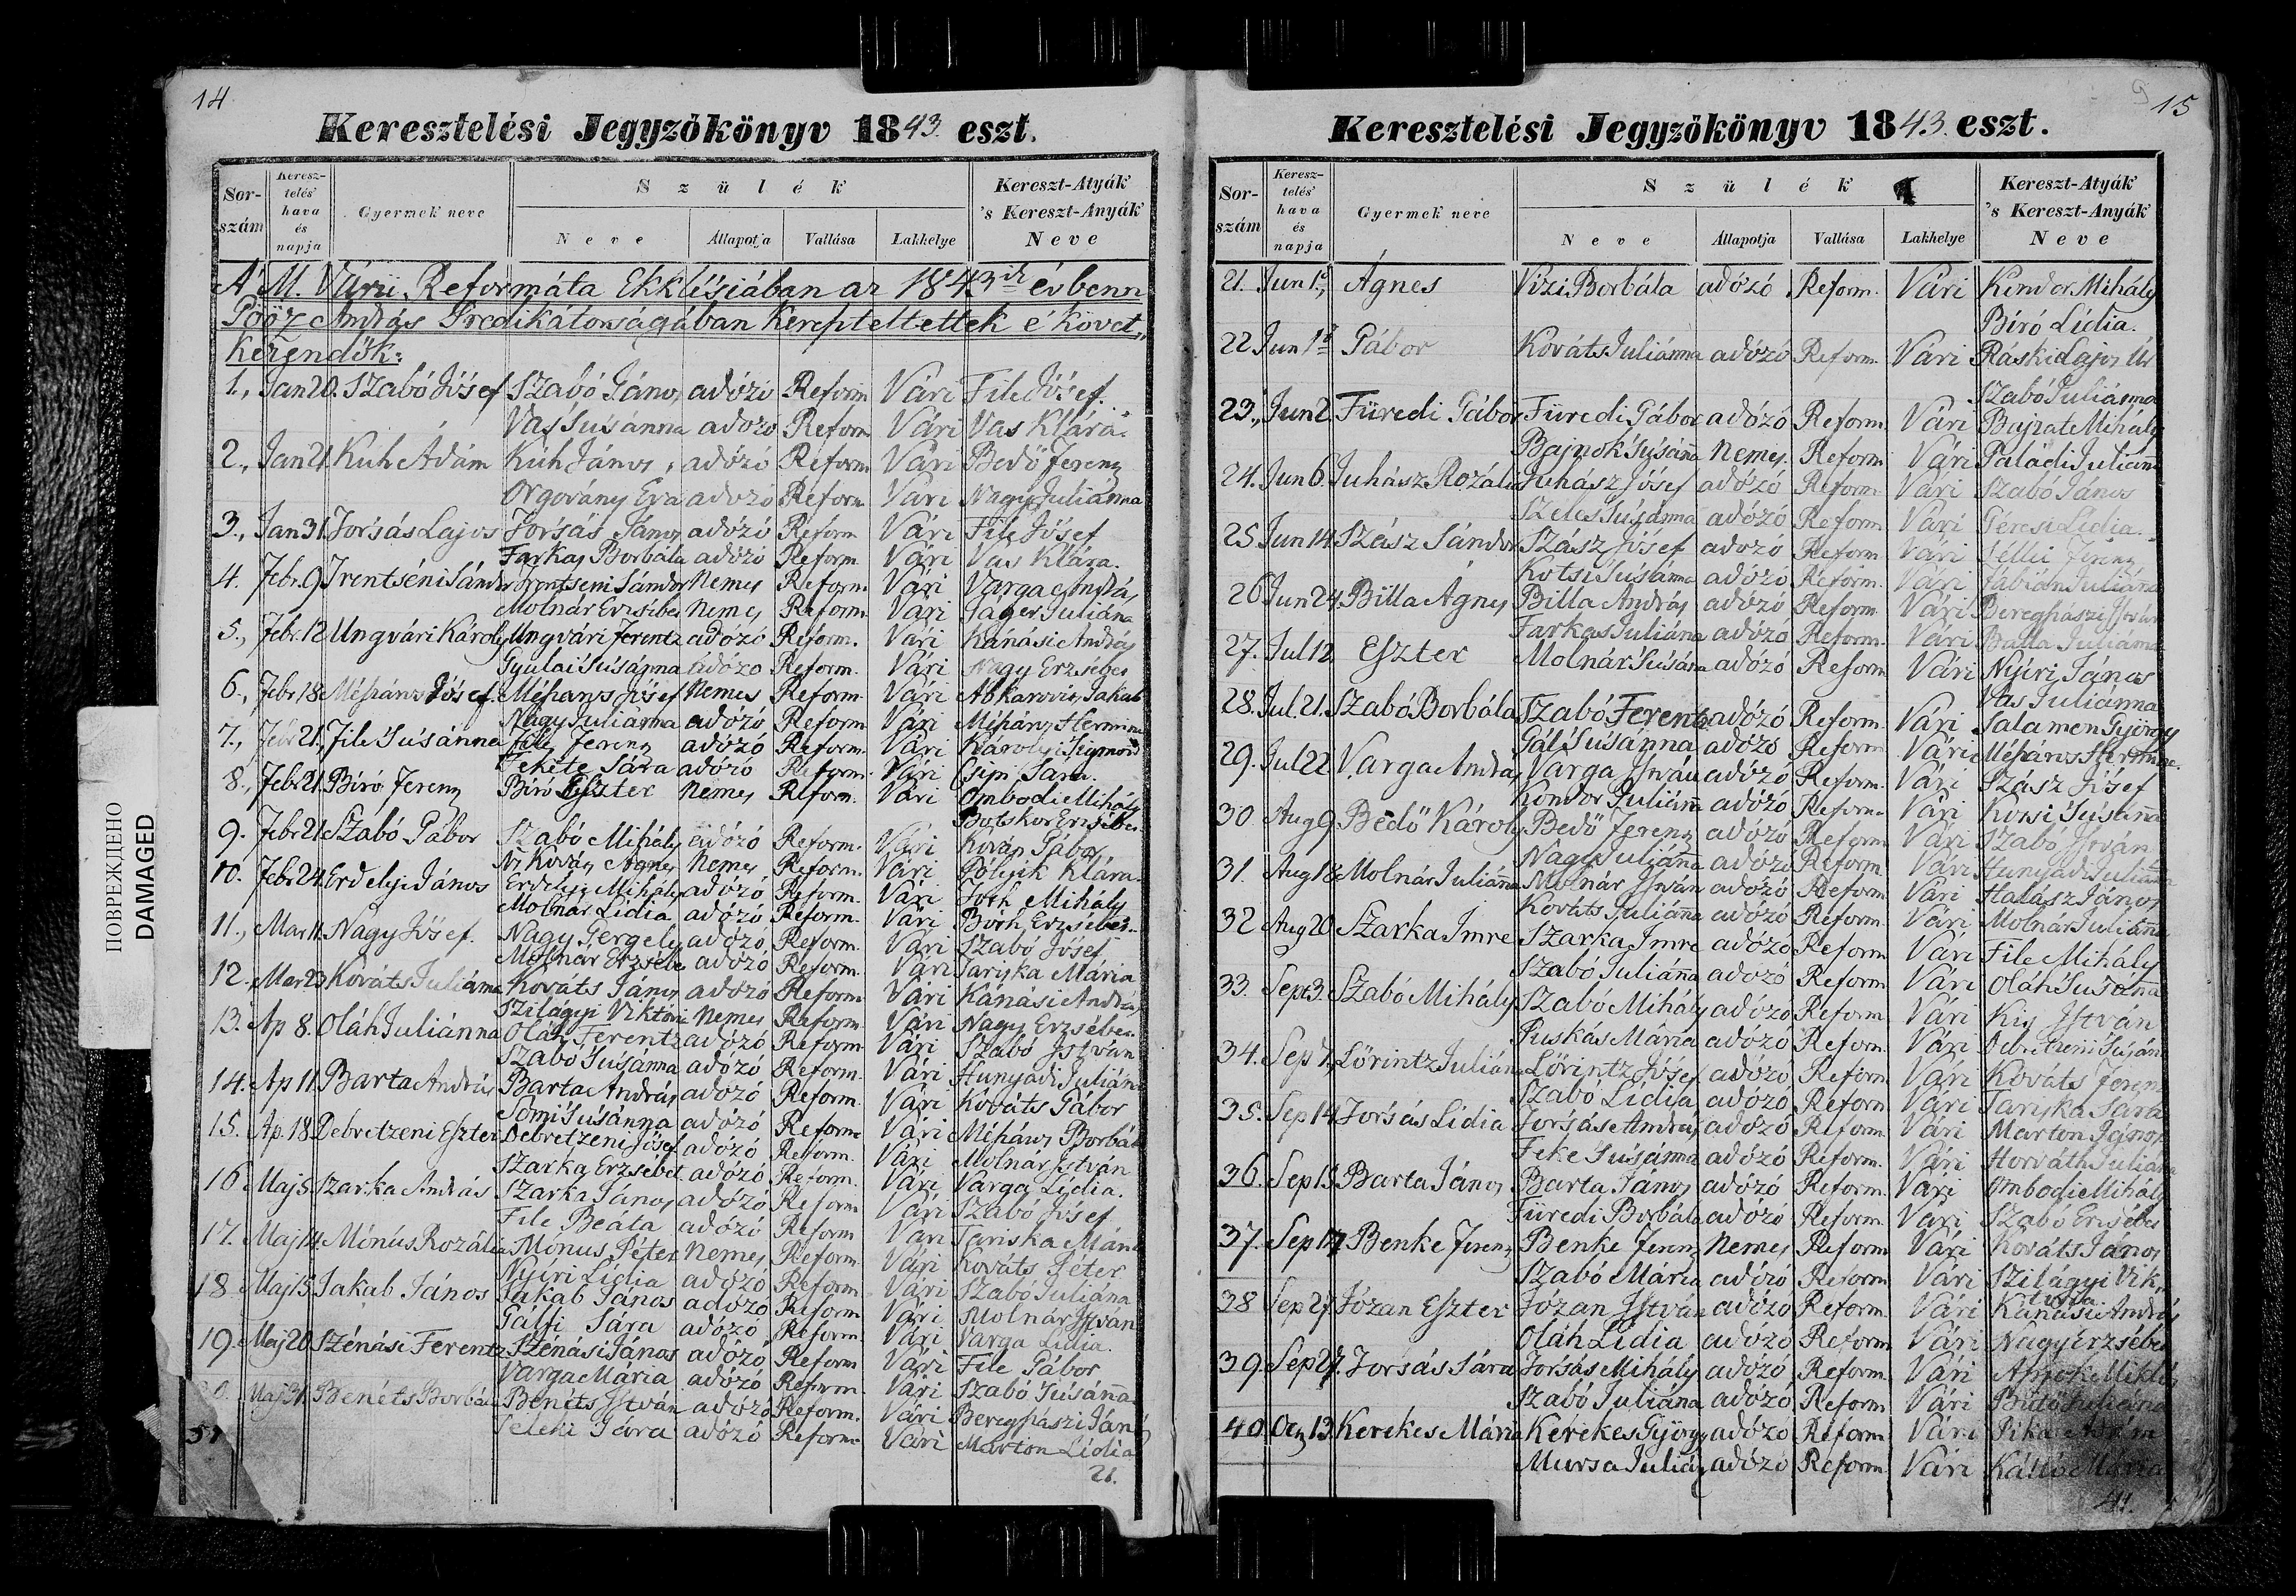 14
Keresztelési Jegyzökönyv 1843. eszt.
Sor-szám
Keresz-telés' hava és napja
Gyermek neve
Szülék'
Neve
Állapotja
Vallása
Lakhelye
Kereszt-Atyák' 's Kereszt-Anyák' Neve
A' M. Várii Reformáta Ekklésiában az 1843ik évbenn
Poóz András Predikátorságában kereszteltettek e' követ,,
kezendők:
1., Jan 20. Szabó Jósef Szabó János adózó Reform Vári File Jósef.
Vas Susánna adózó Reform Vári Vas Klára.
2., Jan 21. Kuh Ádám Kuh János, adózó Reform Vári Bedő Ferenz
Orgovány Eva adózó Reform. Vári Nagy Juliánna
3., Jan 31. Forsás Lajos Forsás János adózó Reform Vári File Jósef
Farkas Borbála adózó Reform. Vári Vas Klára.
4. Febr. 9. Trentséni Sándor Trentseni Sándor Nemes Reform. Vári Varga András
Molnár Erzsébet Nemes Reform. Vári Jager Juliána
5., Febr. 12 Ungvári Károly Ungvári Ferentz adózó Reform. Vári Kanási András
Gyulai Susánna adózo Reform. Vári Nagy Erzsébet
6., Febr. 18 Mészáros Jósef. Mészaros Jósef Nemes Reform. Vári Jakab
Nagy Julianna adózó Reform. Vári
7., Febr 21. File Susánna File Ferenz adózó Reform. Vári Károlyi Sigmond
Fekete Sára adózó Reform. Vári Csipi Sara.
8., Febr 21. Biró Ferenz Biró Eszter Nemes Reform. Vári Ombodi Mihály
Botskor Erzsébet
9. Febr 21. Szabó Gábor Szabó Mihály adózó Reform. Vári Kovás Gábor
N. Kovás Agnes Nemes Reform. Vári Klára.
10. Febr 24. Erdelyi János Erdelyi Mihály adózó Reform. Vári Toth Mihály
Molnár Lidia adózó Reform. Vári Bóth Erzsébet.
11., Mar 11. Nagy Jósef. Nagy Gergely adózó Reform. Vári Szabó Jósef
Molnár Erzsébet adózó Reform. Vári Tariska Mária
12. Mar 23 Kováts Juliánna Kováts János adózó Reform. Vári Kánási András
Szilágyi Viktória Nemes Reform. Vári Nagy Erzsébet.
13. Ap 8. Oláh Juliánna Oláh Ferentz adózó Reform. Vári Szabó István
Szabó Susánna adózó Reform. Vári Hunyadi Julián
14. Ap 11. Barta András Barta András adózó Reform. Vári Kováts Gábor
Somi Susánna adózó Reform Vári Mészáros Borbál
15. Ap. 18. Debretzeni Eszter Debretzeni Jósef adózó Reform. Vári Molnár István
Szarka Erzsébet adózó Reform. Vári Varga Lidia.
16 Maj 5. Szarka András Szarka János adózó Reform Vári Szabó Jósef
File Beáta adózó Reform Vári Tariska Mári
17. Maj 14. Mónus Rozália Mónus Péter Nemes Reform Vári Kováts Péter
Nyiri Lidia adózó Reform Vári Szabó Juliána
18 Maj 15. Jakab János Jakab János adózó Reform Vári Molnár István
Gálfi Sára adózó Reform. Vári Varga Lidia.
19. Maj 20. Szénási Ferentz Szénási János adózó Reform Vári File Gábor
Varga Mária adózó Reform. Vári Szabó Susánna
0. Maj 31. Benéts Borbála Benéts István adózó Reform. Vári Beregszászi Ján
Teleki Sára adózó Reform. Vári Marton Lidia
21.
ПОВРЕЖДЕНО
DAMAGED
15
Keresztelési Jegyzökönyv 1843. eszt.
Sor-szám
Keresz-telés' hava és napja
Gyermek neve
Szülék'
Neve
Állapotja
Vallása
Lakhelye
Kereszt-Atyák' 's Kereszt-Anyák' Neve
21. Jun 1ő, Ágnes Vizi Borbála adózó Reform. Vári Kondor Mihály
Bíró Lídia.
22 Jun 1ő Gábor Kováts Juliánna adózó Reform. Vári Ráski Lajos Úr
Szabó Juliánna
23., Jun 2. Füredi Gábor Füredi Gábor adózó Reform. Vári Mihály
Bajnok Susánn Nemes Reform. Vári Paládi Juliánn
24. Jun 6. Juhász Rozália Juhász Jósef adózó Reform. Vári Szabó János
Szeles Susánna adózó Reform. Vári Géresi Lidia.
25 Jun 14. Szász Sándor Szász Jósef adózó Reform. Vári Ferenz
Kotsi Susánna adózó Reform. Vári Fabián Juliánna
26 Jun 24. Billa Ágnes Billa András adózó Reform. Vári Beregszászi István
Farkas Juliánna adózó Reform. Vári Balla Juliánna
27. Jul 12. Eszter Molnár Susána adózó Reform Vári Nyiri János
Vas Juliánna
28. Jul. 21. Szabó Borbála Szabó Ferentz adózó Reform. Vári Salamon György
Gál Susánna adózó Reform. Vári Mészáros Hermine.
29. Jul 22 Varga András Varga István adózó Reform. Vári Szász Jósef
Kondor Juliánn adózó Reform. Vári Susánn
30 Aug 9. Bedő Károly Bedő Ferenz adózó Reform Vári Szabó István
Nagy Juliánn adózó Reform Vári Hunyadi Juliánn
31. Aug 18 Molnár Juliánna Molnár István adózó Reform. Vári Halász János
Kováts Juliánna adózó Reform Vári Molnár Juliánn
32 Aug 20. Szarka Imre Szarka Imre adózó Reform Vári File Mihály
Szabó Juliánna adózó Reform Vári Oláh Susánna
33. Sep 3. Szabó Mihály Szabó Mihály adózó Reform Vári Kis István
Puskás Mária adózó Reform. Vári Debretzeni Susán
34. Sep 7. Lőrintz Julián Lőrintz Jósef adózó Reform Vári Kováts Ferenz
Szabó Lidia adózó Reform Vári Tariska Sára
35. Sep 14. Forsás Lidia Forsás András adózó Reform. Vári Marton János
Feke Susánna adózó Reform. Vári Horváth Julian
36. Sep 15. Barta János Barta János adózó Reform. Vári Ombodi Mihály
Füredi Borbála adózó Reform. Vári Szabó Ersébet
37. Sep 17 Benke Ferenz Benke Ferenz Nemes Reform Vári Kováts János
Szabó Mária adózó Reform Vári Szilágyi Vik,
toria
38 Sep 27. Józan Eszter Józan István adózó Reform. Vári Kanási András
Oláh Lidia adózó Reform Vári Nagy Erzsébet
39. Sep 27. Forsás Sára Forsás Mihály adózó Reform. Vári Miklós
Szabó Juliána adózó Reform Vári Juliána
40. Oct 13. Kerekes Mária Kerekes György adózó Reform Vári Pika
Mursa Julián adózó Reform Vári Mária
41.